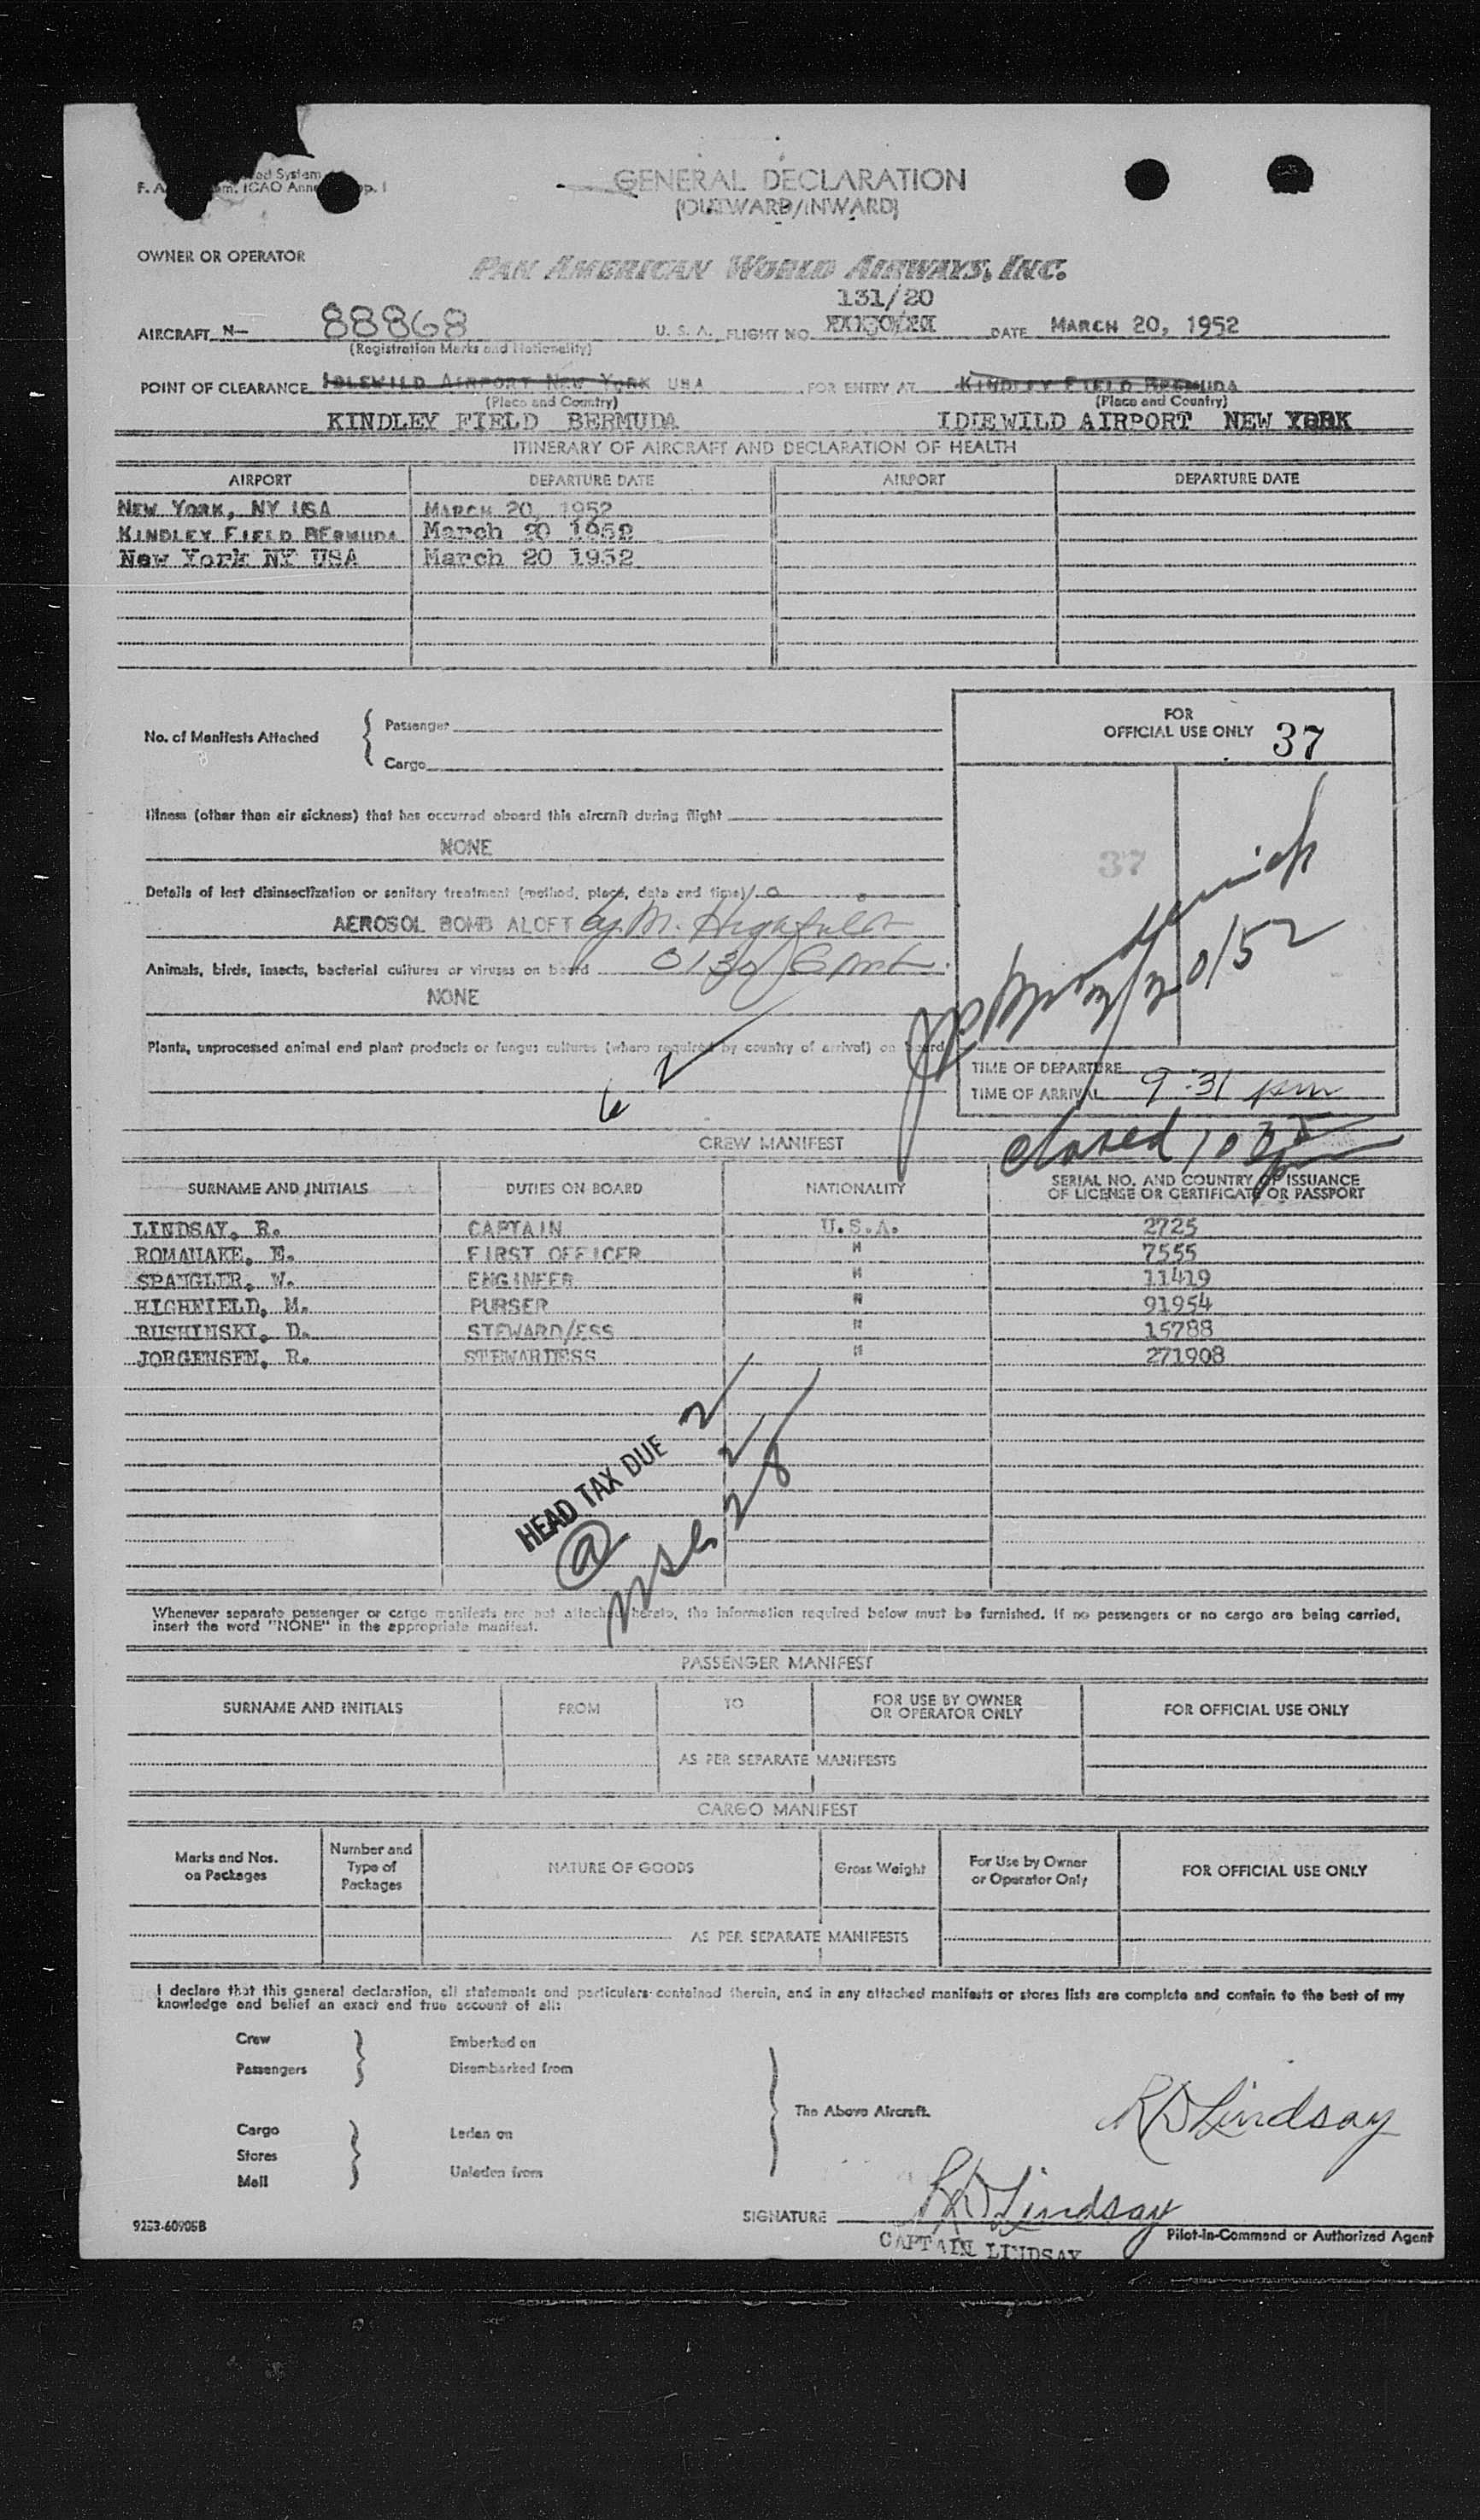 GENERAL DECLARATION
(OUTWARD/INWARD)
OWNER OR OPERATOR
PAN AMERICAN WORLD AIRWAYS, INC.
131/20
AIRCRAFT N— 88868 U. S. A. FLIGHT NO. DATE MARCH 20, 1952
(Registration Marks and Nationality)
POINT OF CLEARANCE IDLEWILD AIRPORT NEW YORK USA FOR ENTRY AT KINDLEY FIELD BERMUDA
(Place and Country) (Place and Country)
KINDLEY FIELD BERMUDA IDIEWILD AIRPORT NEW YORK
ITINERARY OF AIRCRAFT AND DECLARATION OF HEALTH
AIRPORT DEPARTURE DATE AIRPORT DEPARTURE DATE
NEW YORK, NY USA MARCH 20, 1952
KINDLEY FIELD BERMUDA March 20 1952
New York NY USA March 20 1952
No. of Manifests Attached { Passenger
Cargo
FOR
OFFICIAL USE ONLY 37
37
Illness (other than air sickness) that has occurred aboard this aircraft during flight
NONE
Details of last disinsectization or sanitary treatment (method, place, date and time)
AEROSOL BOMB ALOFT by M. Highfield
Animals, birds, insects, bacterial cultures or viruses on board 0130 Gmt
NONE
3/20/52
Plants, unprocessed animal and plant products or fungus cultures (where required by country of arrival) on board
2
6
TIME OF DEPARTURE
TIME OF ARRIVAL 9:31 pm
closed 10
CREW MANIFEST
SURNAME AND INITIALS DUTIES ON BOARD NATIONALITY SERIAL NO. AND COUNTRY OF ISSUANCE
OF LICENSE OR CERTIFICATE OR PASSPORT
LINDSAY, R. CAPTAIN U.S.A. 2725
ROMANAKE, E. FIRST OFFICER " 7555
SPANGLER, W. ENGINEER " 11419
HIGHFIELD, M. PURSER " 91954
BUSHINSKI, D. STEWARD/ESS " 15788
JORGENSEN, R. STEWARDESS " 271908
HEAD TAX DUE 2
2
28
Whenever separate passenger or cargo manifests are not attached hereto, the information required below must be furnished. If no passengers or no cargo are being carried,
insert the word "NONE" in the appropriate manifest.
PASSENGER MANIFEST
SURNAME AND INITIALS FROM TO FOR USE BY OWNER
OR OPERATOR ONLY FOR OFFICIAL USE ONLY
AS PER SEPARATE MANIFESTS
CARGO MANIFEST
Marks and Nos.
on Packages Number and
Type of
Packages NATURE OF GOODS Gross Weight For Use by Owner
or Operator Only FOR OFFICIAL USE ONLY
AS PER SEPARATE MANIFESTS
I declare that this general declaration, all statements and particulars contained therein, and in any attached manifests or stores lists are complete and contain to the best of my
knowledge and belief an exact and true account of all:
Crew Embarked on
Passengers Disembarked from
The Above Aircraft.
RD Lindsay
Cargo Laden on
Stores
Mail Unladen from
SIGNATURE RD Lindsay
Pilot-in-Command or Authorized Agent
CAPTAIN LINDSAY
9253-60905B